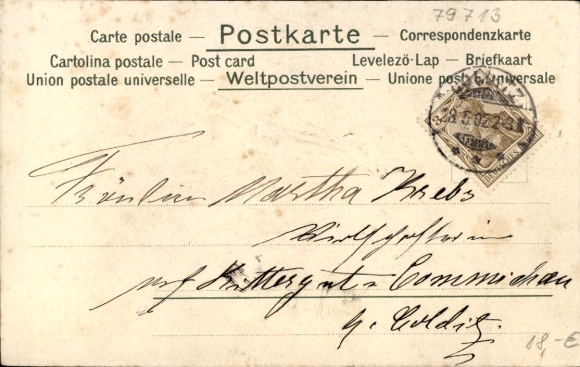 79713
Carte postale — Postkarte — Correspondenzkarte
Cartolina postale — Post card Levelező-Lap — Briefkaart
Union postale universelle — Weltpostverein — Unione postale universale
Fräulein Martha Krebs
Wirthschafterin
auf Rittergut Commichau
b. Colditz.
18,-€